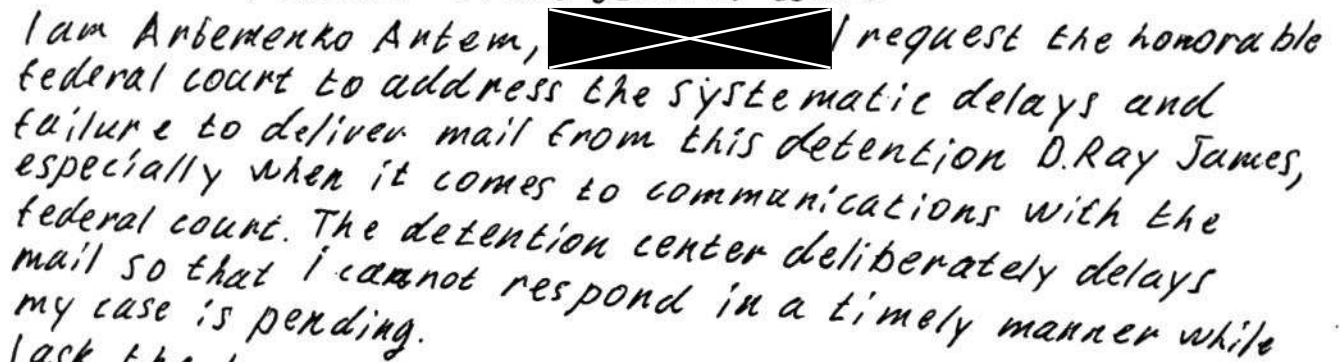 I am Artemenko Artem, I request the honorable
federal court to address the systematic delays and
failure to deliver mail from this detention D.Ray James,
especially when it comes to communications with the
federal court. The detention center deliberately delays
mail so that i cannot respond in a timely manner while
my case is pending.
I ask the